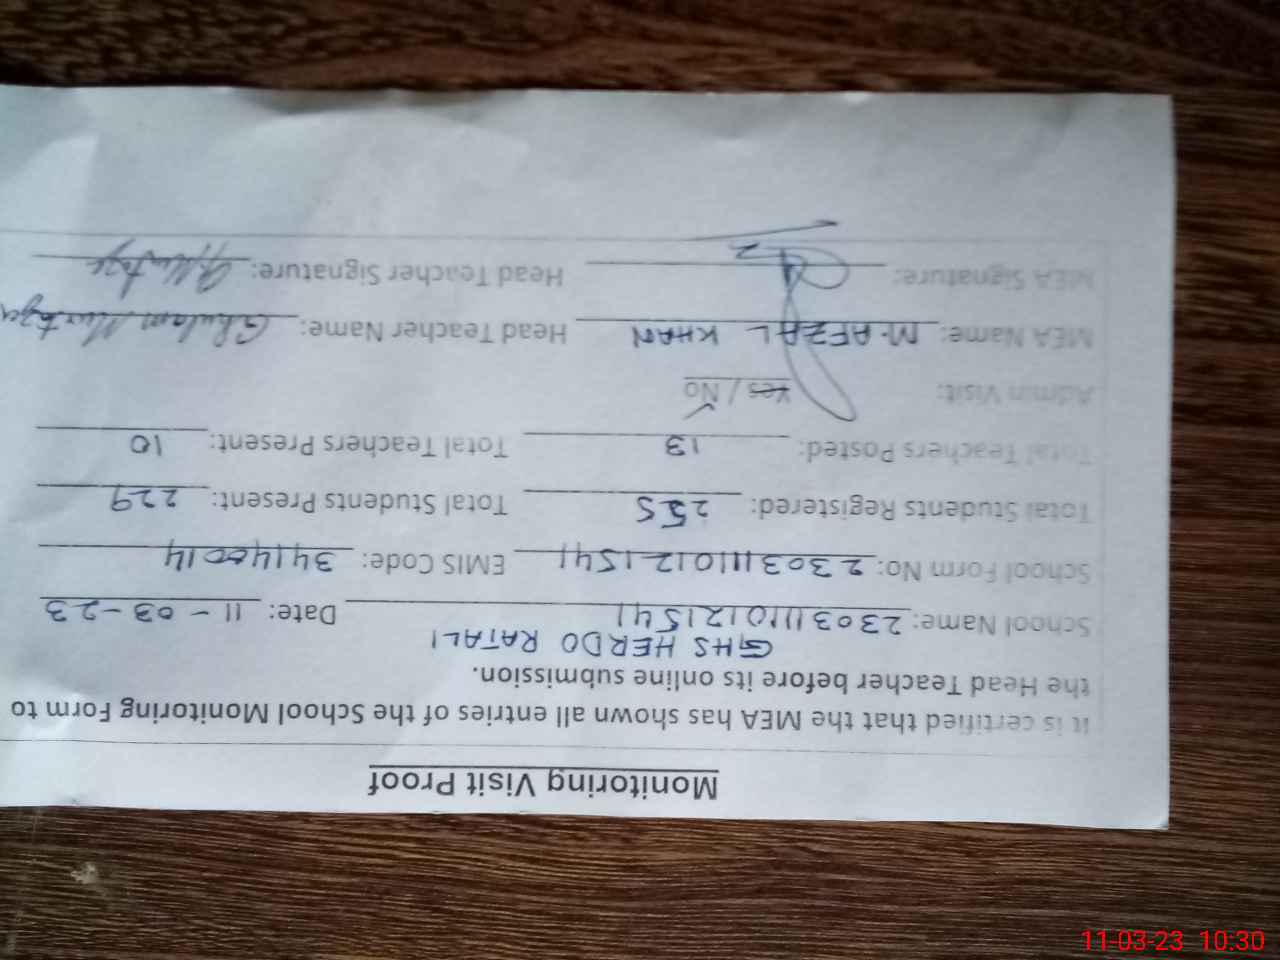 Monitoring Visit Proof
It is certified that the MEA has shown all entries of the School Monitoring Form to
the Head Teacher before its online submission.
GHS HERDO RATALI
School Name: 23031110121541 Date: 11-03-23
School Form No: 23031110121541 EMIS Code: 34140014
Total Students Registered: 255 Total Students Present: 229
Total Teachers Posted: 13 Total Teachers Present: 10
Admin Visit: Yes / No
MEA Name: M. AFZAL KHAN Head Teacher Name: Ghulam Murtaza
MEA Signature: Head Teacher Signature: G. Murtaza
11-03-23 10:30